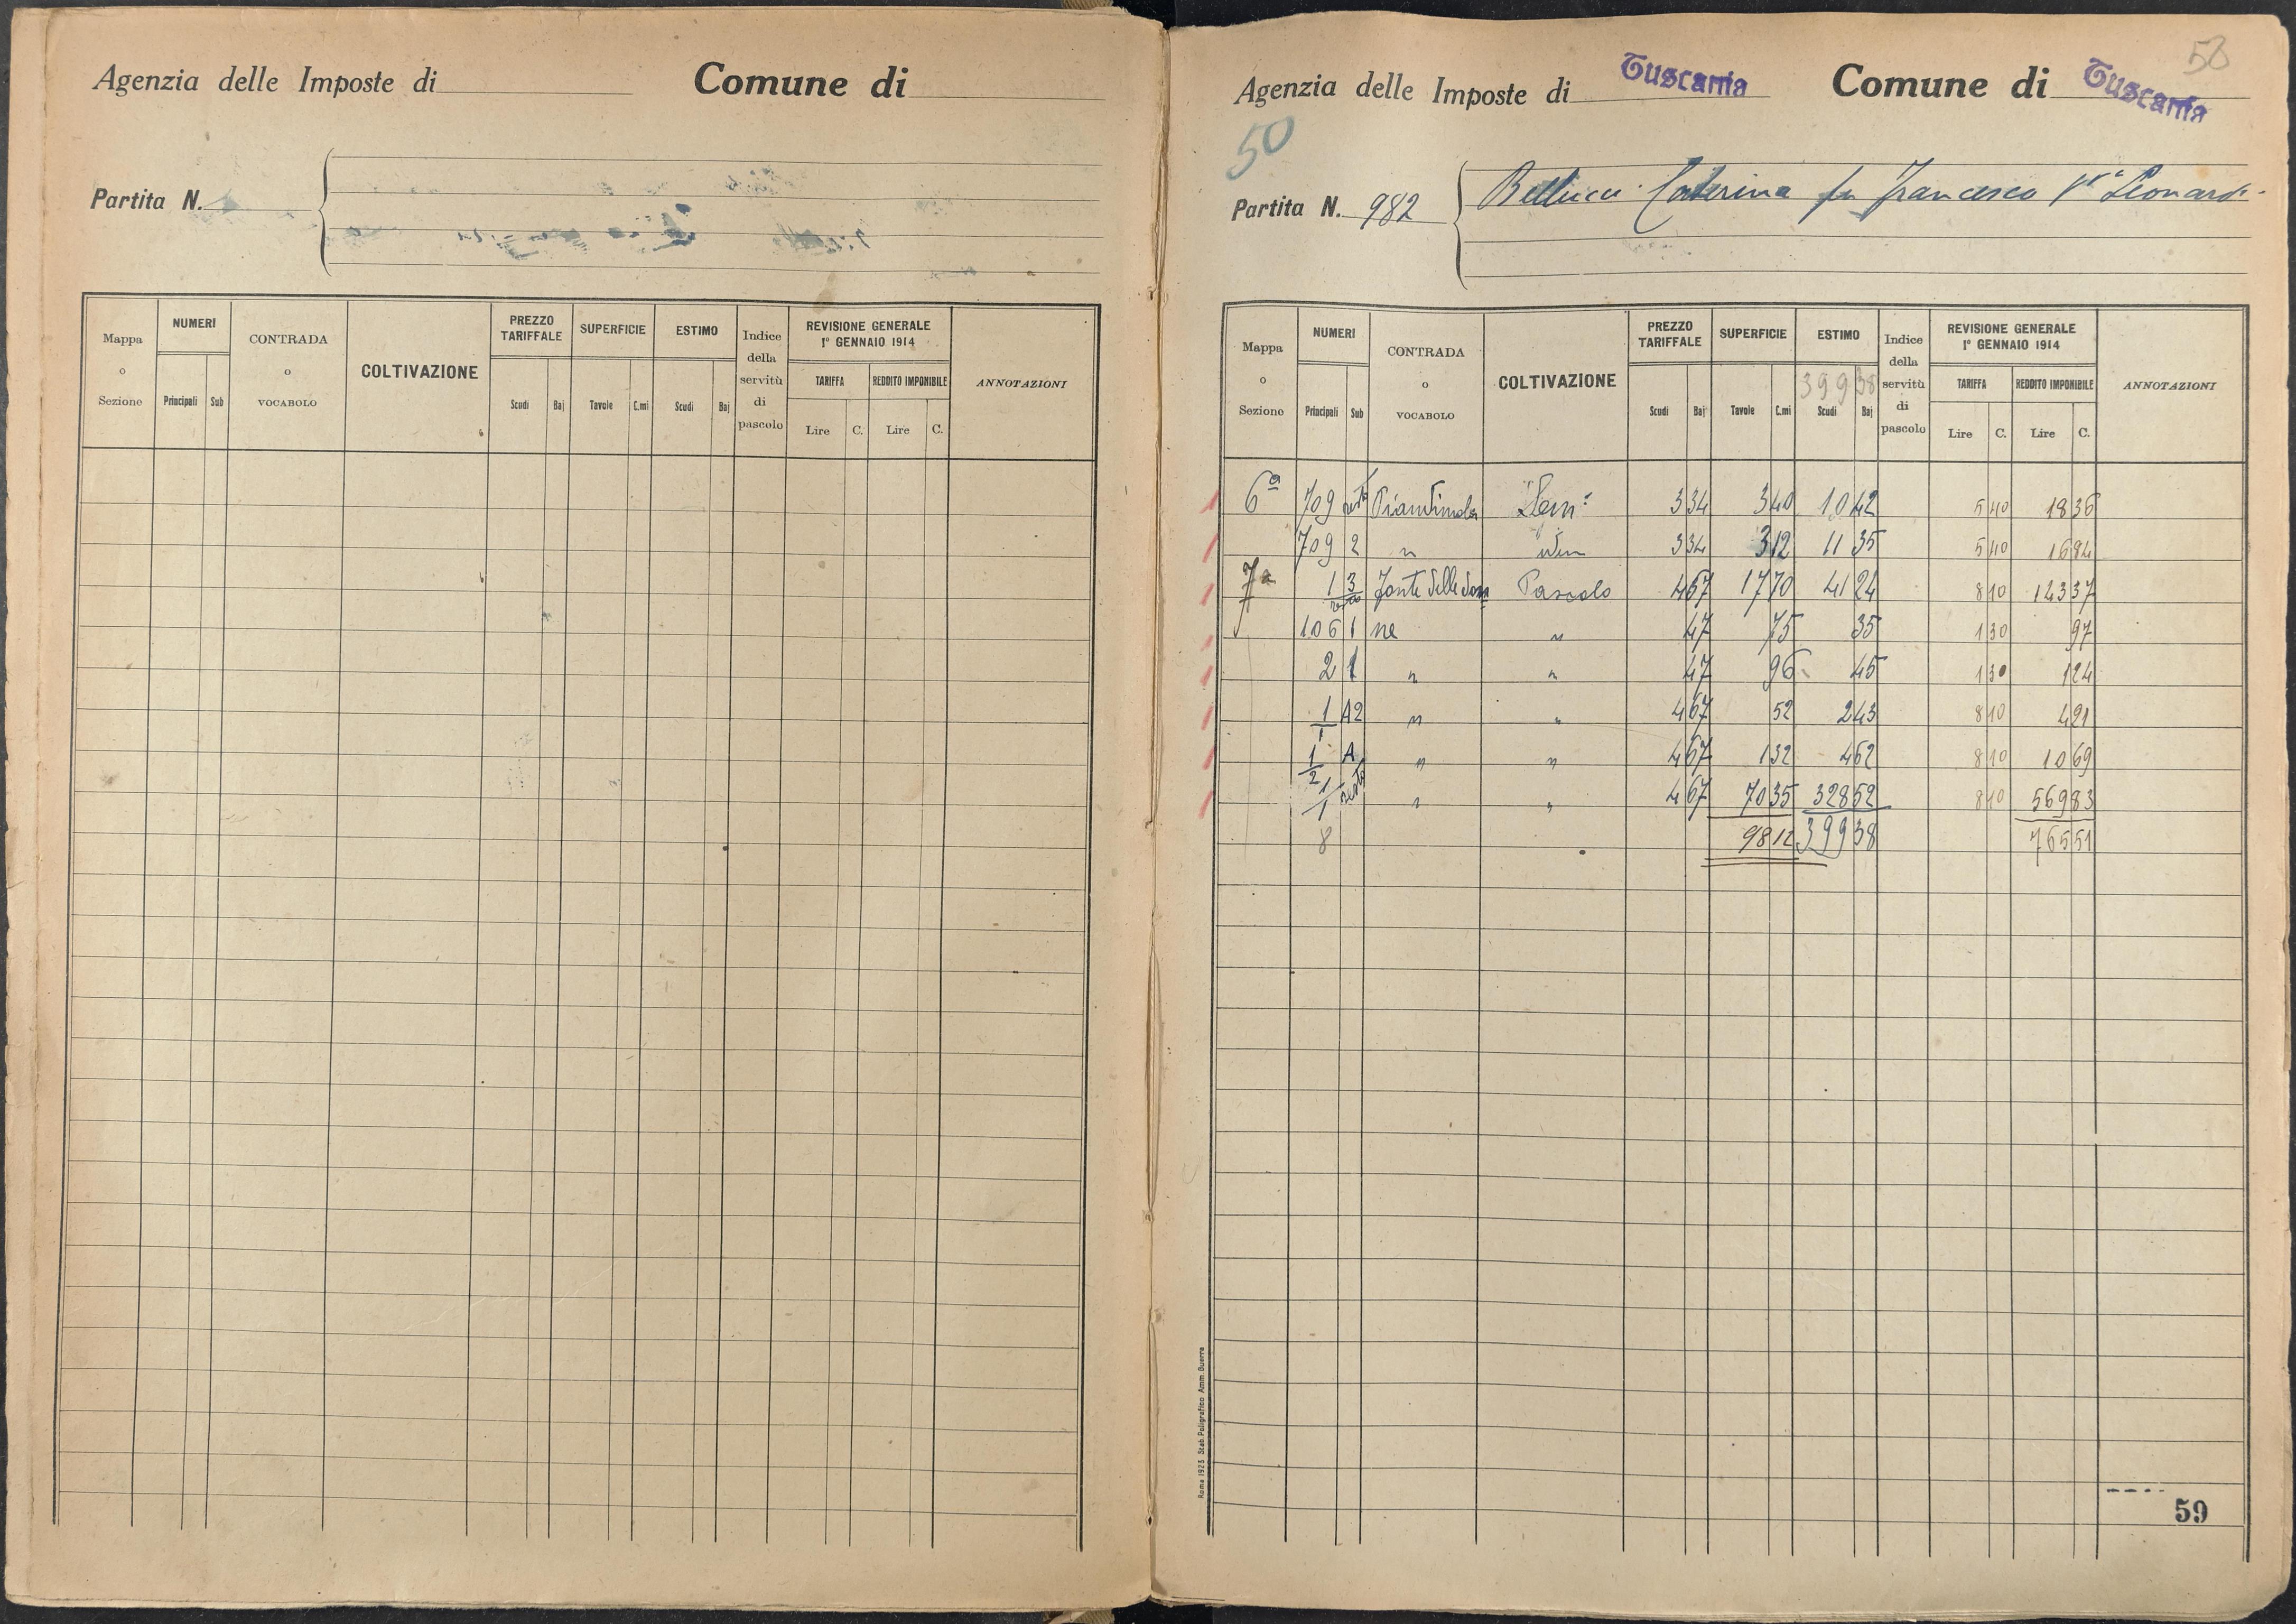 Agenzia delle Imposte di Comune di
Partita N.
Mappa o Sezione NUMERI CONTRADA o VOCABOLO COLTIVAZIONE PREZZO TARIFFALE SUPERFICIE ESTIMO Indice della servitù di pascolo REVISIONE GENERALE 1° GENNAIO 1914 ANNOTAZIONI
TARIFFA REDDITO IMPONIBILE
Principali Sub Scudi Baj Tavole C.mi Scudi Baj Lire C. Lire C.
58
Agenzia delle Imposte di Tuscania Comune di Tuscania
50
Partita N. 982 Bellucci Caterina fu Francesco Leonardi
Mappa o Sezione NUMERI CONTRADA o VOCABOLO COLTIVAZIONE PREZZO TARIFFALE SUPERFICIE ESTIMO Indice della servitù di pascolo REVISIONE GENERALE 1° GENNAIO 1914 ANNOTAZIONI
399 38
TARIFFA REDDITO IMPONIBILE
Principali Sub Scudi Baj Tavole C.mi Scudi Baj Lire C. Lire C.
6a 709 Sem: 3 34 3 40 10 42 5 40 18 36
709 2 " idem 3 34 3 12 11 35 5 40 16 84
7a 1 3 Fonte delle Pascolo 4 67 17 70 41 24 8 10 143 37
106 1 ne " 47 75 35 1 30 97
2 1 " " 47 96 45 1 30 1 24
1/1 A2 " " 4 67 52 2 43 8 10 4 21
1/2 A " " 4 67 1 32 4 62 8 10 10 69
1/1 resto " " 4 67 70 35 328 52 8 10 569 83
8 98 12 399 38 765 51
Roma 1923 Stab. Poligrafico Amm. Guerra
59